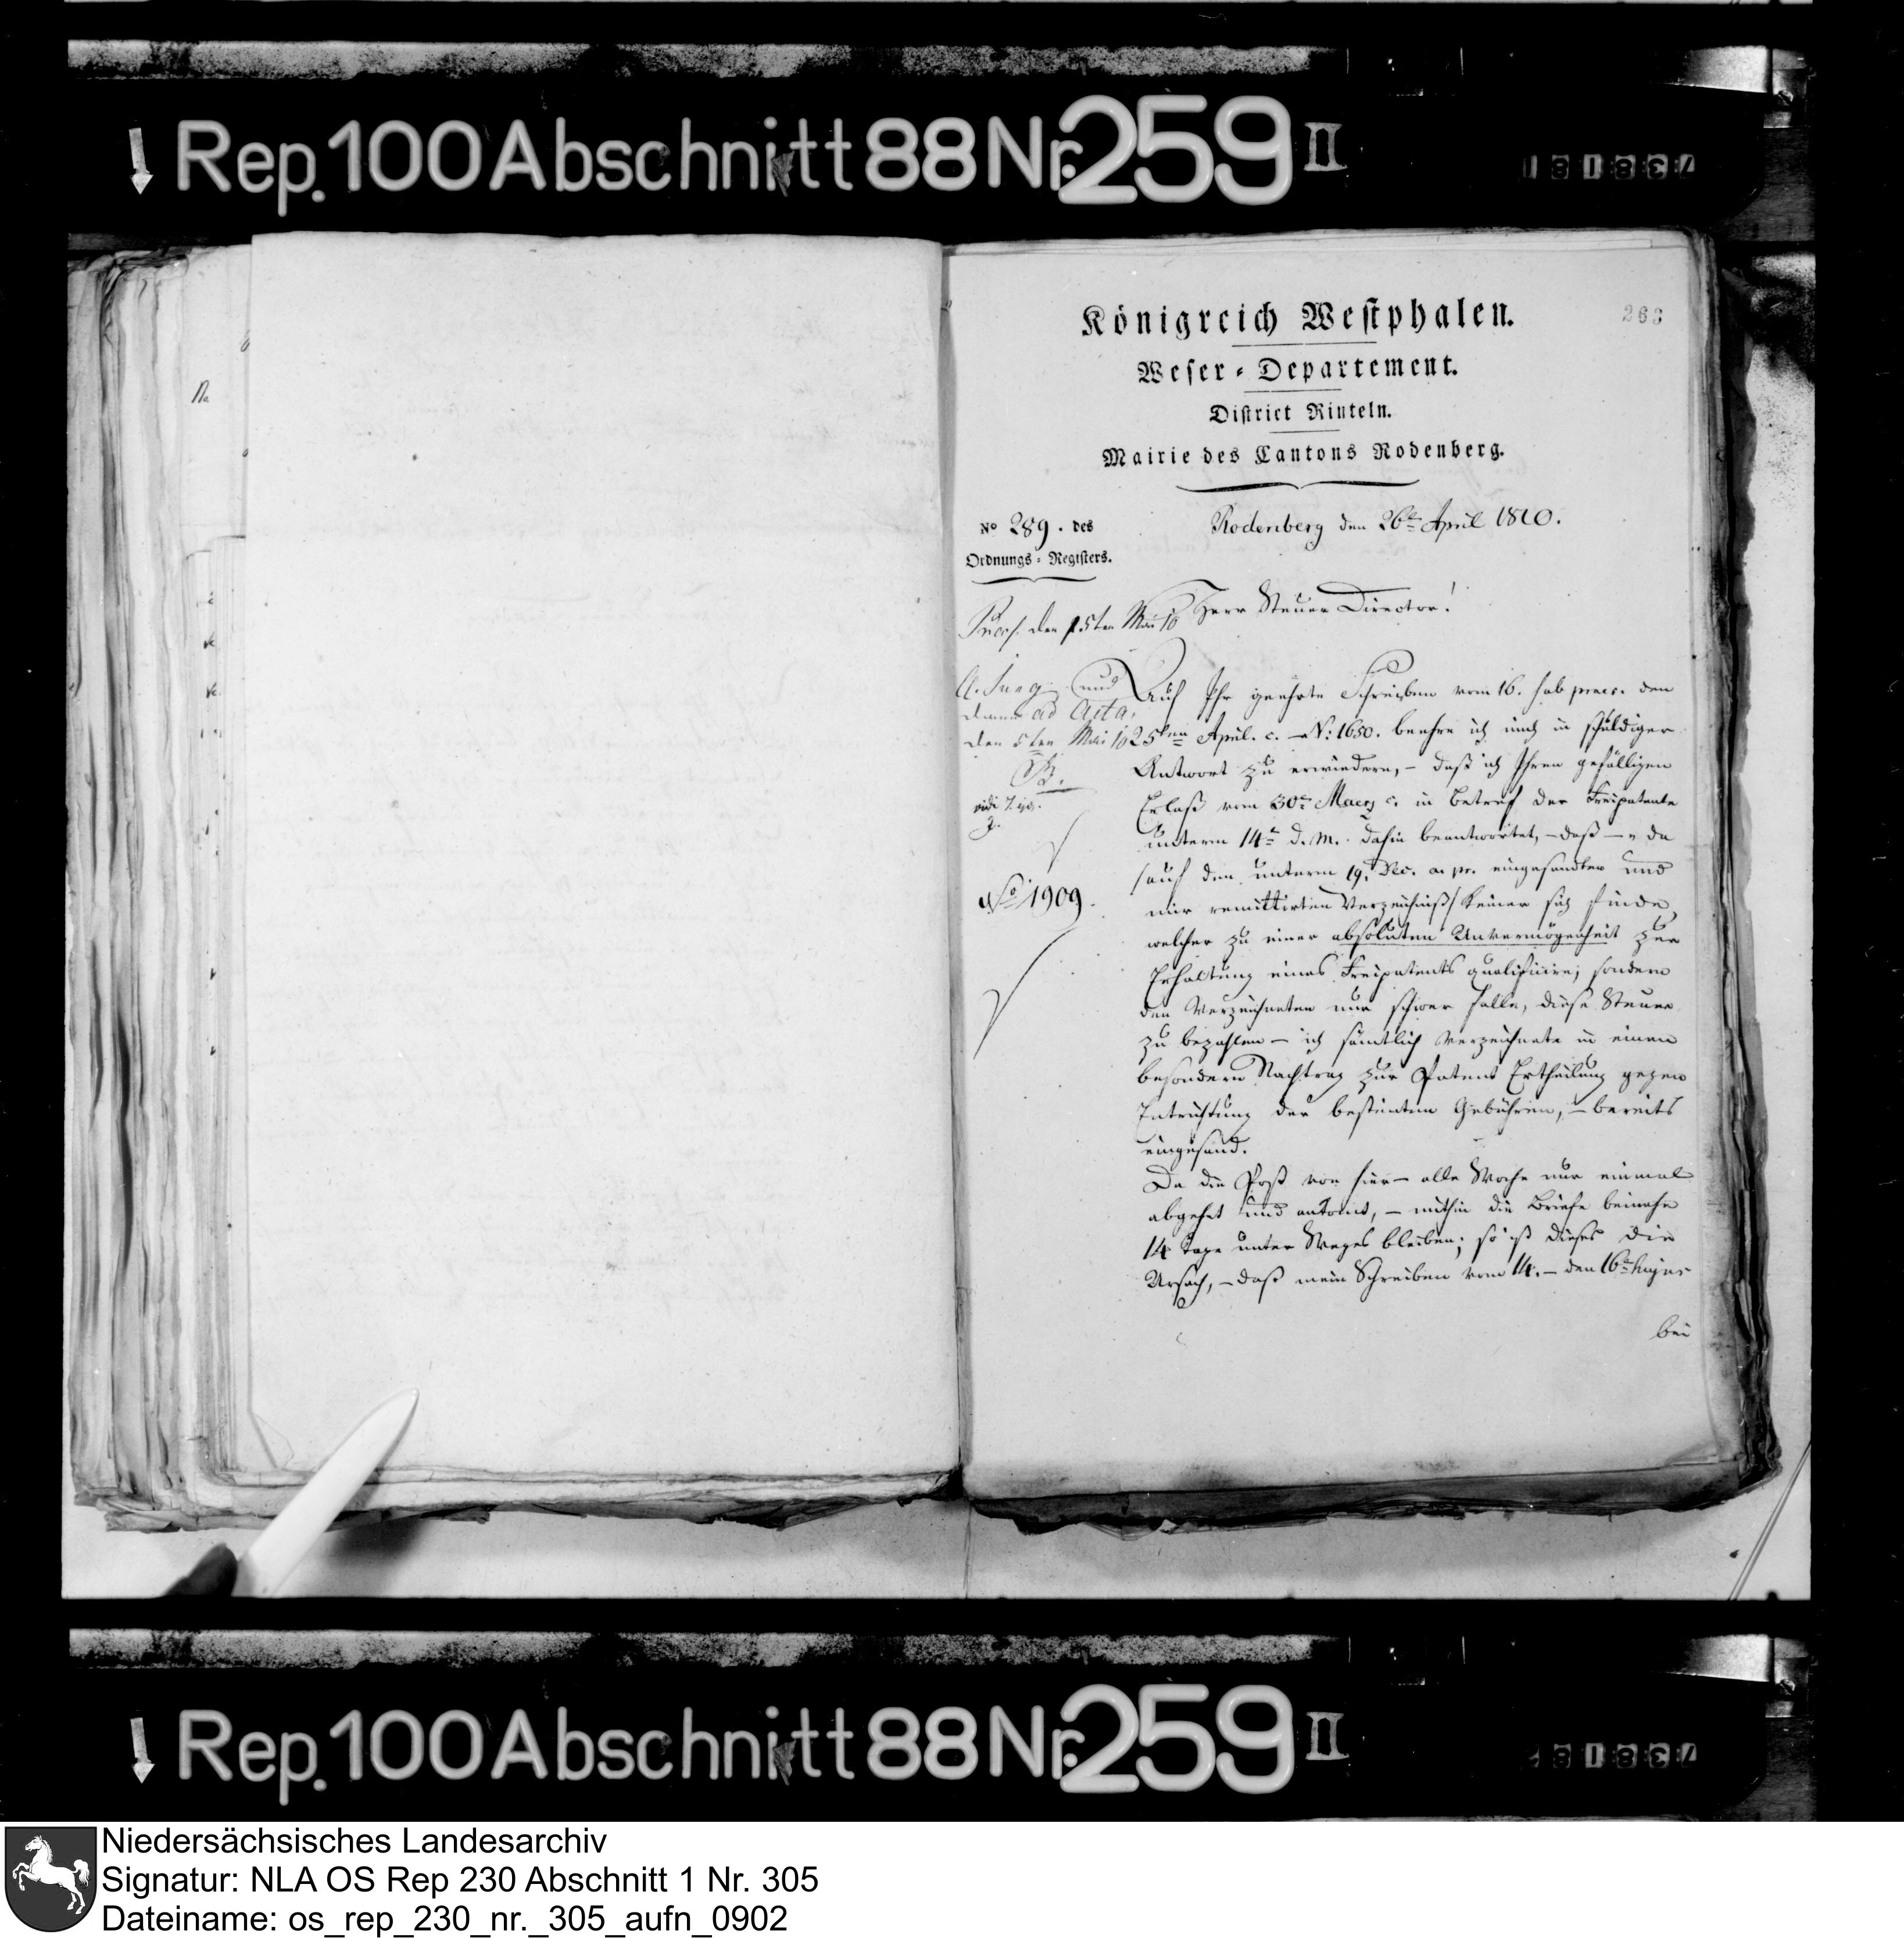 Rep. 100 Abschnitt 88 Nr. 259 II
263
Königreich Westphalen.
Weser-Departement.
District Rinteln.
Mairie des Cantons Rodenberg.
No 289. des
Ordnungs-Registers.
Rodenberg den 26ten April 1810.
Herr Steuer Director!
Praes. den 5ten Mai 10
und
dann ad Acta.
den 5ten Mai 10
No 1909.
Auf Ihr geehrte Schreiben vom 16. hab praes. den
25ten April. c. N: 1650. beehre ich mich in schuldiger
Antwort zu erwiedern, – daß ich Ihren gefälligen
Erlaß vom 30t Maerz c. in Betref der Freipatente
unterm 14t d. M. dahin beantwortet, – daß – da
/auf den unterm 19. Dec. a. pr. eingesandten und
mir remittirten Verzeichniß/ keiner sich finde,
welcher zu einer absoluten Unvermögenheit zur
Erhaltung eines Freipatents qualificire; sondern
den Verzeichneten nur schwer falle, diese Steuer
zu bezahlen – ich sämtlich Verzeichnete in einem
besondern Nachtrag zur Patent Ertheilung gegen
Entrichtung der bestimten Gebühren, – bereits
eingesand.
Da die Post von hier – alle Woche nur einmal
abgehet und antomt, – mithin die Briefe beinahe
14 Tage unter Weges bleiben; so ist dieses die
Ursach, – daß mein Schreiben vom 14. – den 16t hujus
bei
Rep. 100 Abschnitt 88 Nr. 259 II
Niedersächsisches Landesarchiv
Signatur: NLA OS Rep 230 Abschnitt 1 Nr. 305
Dateiname: os_rep_230_nr._305_aufn_0902